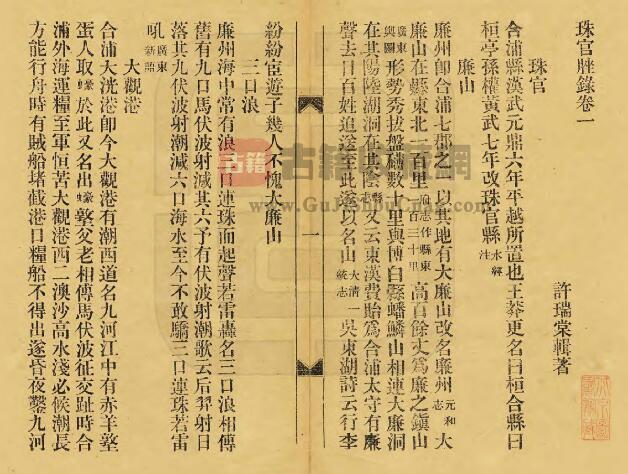 珠官脞錄卷一
許瑞棠輯著
珠官
合浦縣漢武元鼎六年平越所置也王莽更名曰桓合縣曰
桓亭孫權黃武七年改珠官縣水經注
廉山
廉州卽合浦七郡之一以其地有大廉山改名廉州元和志大
廉山在縣東北一百里通志作縣東一百三十里高百餘丈爲廉之鎭山
廣東輿圖形勢秀拔盤礴數十里與博白縣蟠鱗山相連大廉洞
在其陽陸湖洞在其陰縣志又云東漢費貽爲合浦太守有廉
聲去日百姓追送至此遂以名山大清一統志吳東湖詩云行李
一
紛紛宦遊子幾人不愧大廉山
三口浪
廉州海中常有浪三口連珠而起聲若雷轟名三口浪相傳
舊有九口馬伏波射減其六予有伏波射潮歌云后羿射日
落其九伏波射潮減六口海水至今不敢驕三口連珠若雷
吼廣東新語
大觀港
合浦大洸港卽今大觀港有潮西道名九河江中有赤羊墪
蛋人取蠔於此又名出蠔墪父老相傳馬伏波征交趾時合
浦外海運糧至軍恒苦大觀港西二澳沙高水淺必候潮長
方能行舟時有賊船堵截港口糧船不得出遂昏夜鑿九河